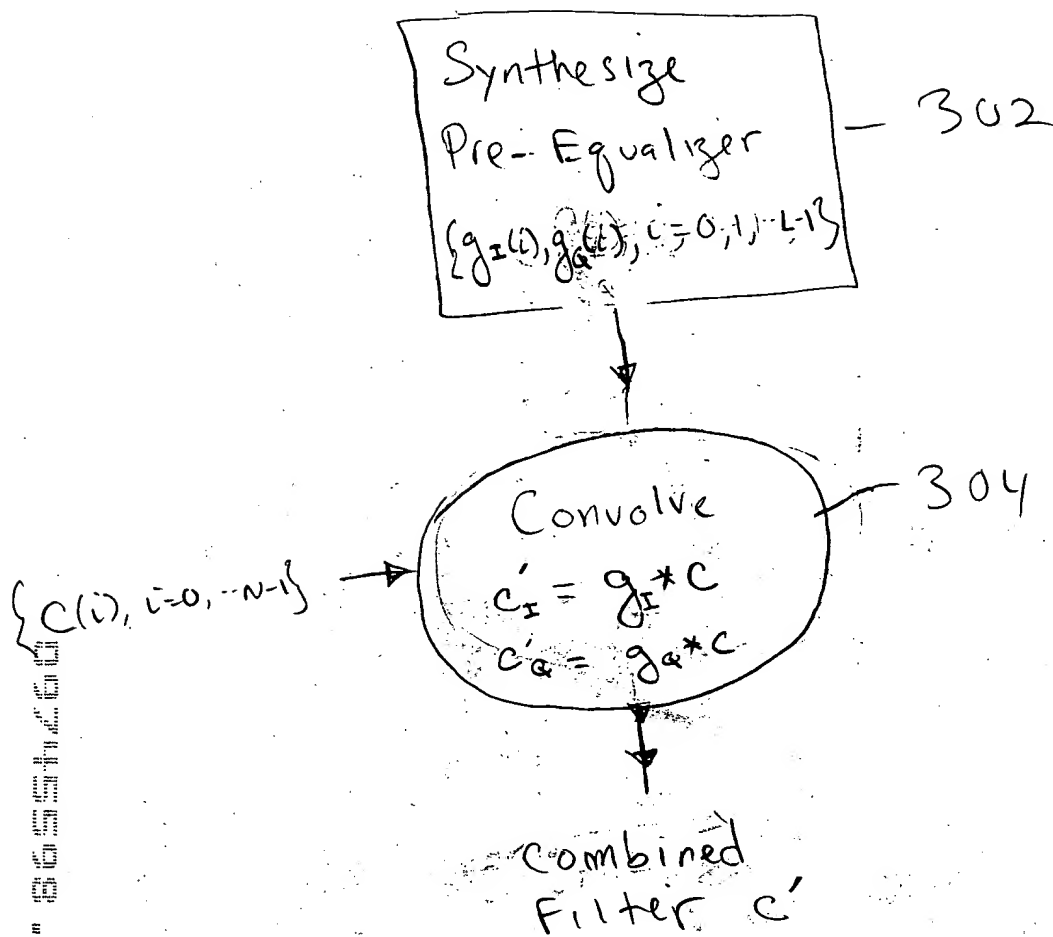 Synthesize
Pre-Equalizer
{g_I(i), g_Q(i), i=0,1,··L-1}
302
Convolve
c'_I = g_I * C
c'_Q = g_Q * C
304
{C(i), i=0, ··N-1}
Combined
Filter c'